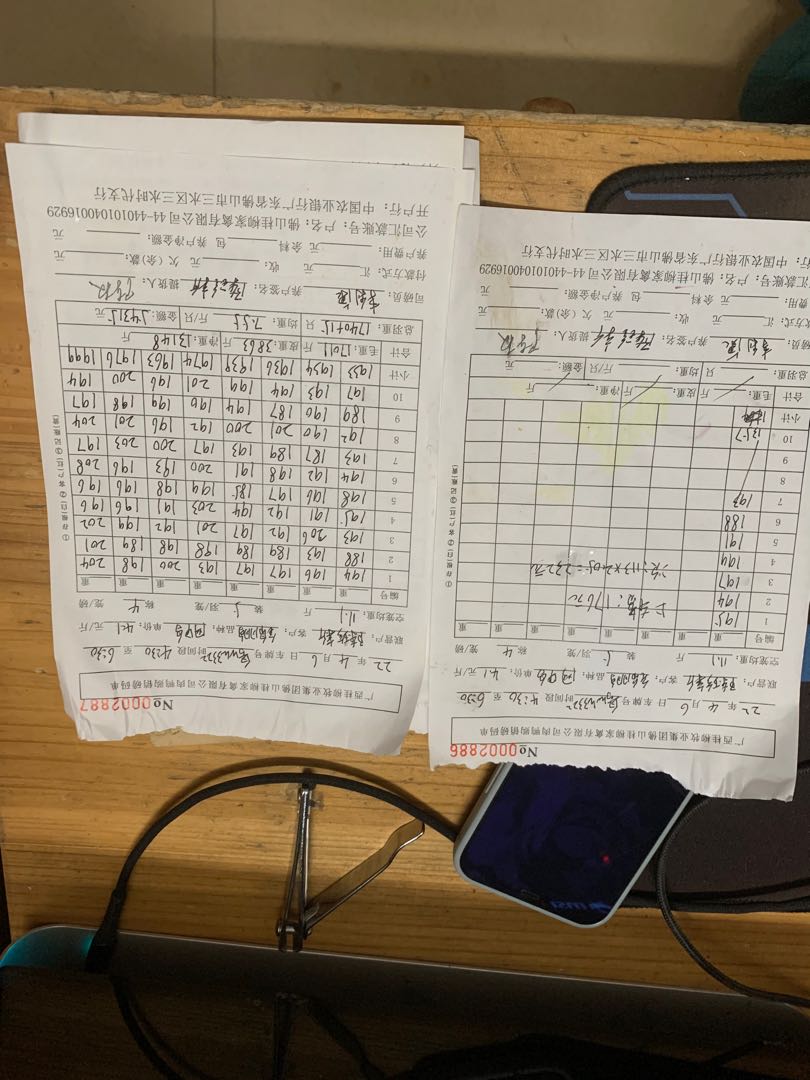 广西桂柳牧业集团佛山桂柳家禽有限公司肉鸭购销码单
No 0002886
22 年 4 月 6 日 车牌号 时间段 4:30 至 6:30
联营户： 客户： 品种： 单价：4.1 元/斤
空笼均重：11.1 斤 装 5 羽/笼 称 4 笼/磅
编号 重 重 重 重 重 重 重 重
1 195
2 194
3 197
4 199
5 191
6 188
7 193
8
9
10 1357
小计
合计 毛重： 斤 皮重： 斤 净重： 斤
总羽重： 只 均重： 斤/只 金额： 元
司磅员： 养户签名： 提货人：
方式：汇 元 收： 元 欠(余)款： 元
费用： 元 余料 包 养户净金额： 元
户名：佛山桂柳家禽有限公司 44-440101040016929
行：中国农业银行广东省佛山市三水区三水时代支行
①存根(白) ②客户(红) ③记账(黄)
广西桂柳牧业集团佛山桂柳家禽有限公司肉鸭购销码单
No 0002887
22 年 4 月 6 日 车牌号 时间段 4:30 至 6:30
联营户： 客户： 品种： 单价：4.1 元/斤
空笼均重：11.1 斤 装 5 羽/笼 称 4 笼/磅
编号 重 重 重 重 重 重 重 重
1 194 196 197 197 193 200 198 204
2 188 193 189 189 198 198 189 201
3 193 206 192 197 201 192 199 202
4 195 191 192 194 203 191 196 196
5 198 196 197 185 199 198 196 196
6 194 192 198 191 200 193 196 208
7 193 187 189 193 197 200 203 197
8 192 190 201 200 192 196 201 204
9 189 190 187 194 196 199 198 197
10 197 193 194 199 201 196 200 194
小计 1933 1934 1936 1939 1974 1963 1976 1999
合计 毛重：17011 斤 皮重：3863 斤 净重：13148 斤
总羽重：1740+15 只 均重：7.55 斤/只 金额： 元
司磅员： 养户签名： 提货人：
付款方式：汇 元 收： 元 欠(余)款： 元
养户费用： 元 余料 包 养户净金额： 元
公司汇款账号：户名：佛山桂柳家禽有限公司 44-440101040016929
开户行：中国农业银行广东省佛山市三水区三水时代支行
①存根(白) ②客户(红) ③记账(黄)